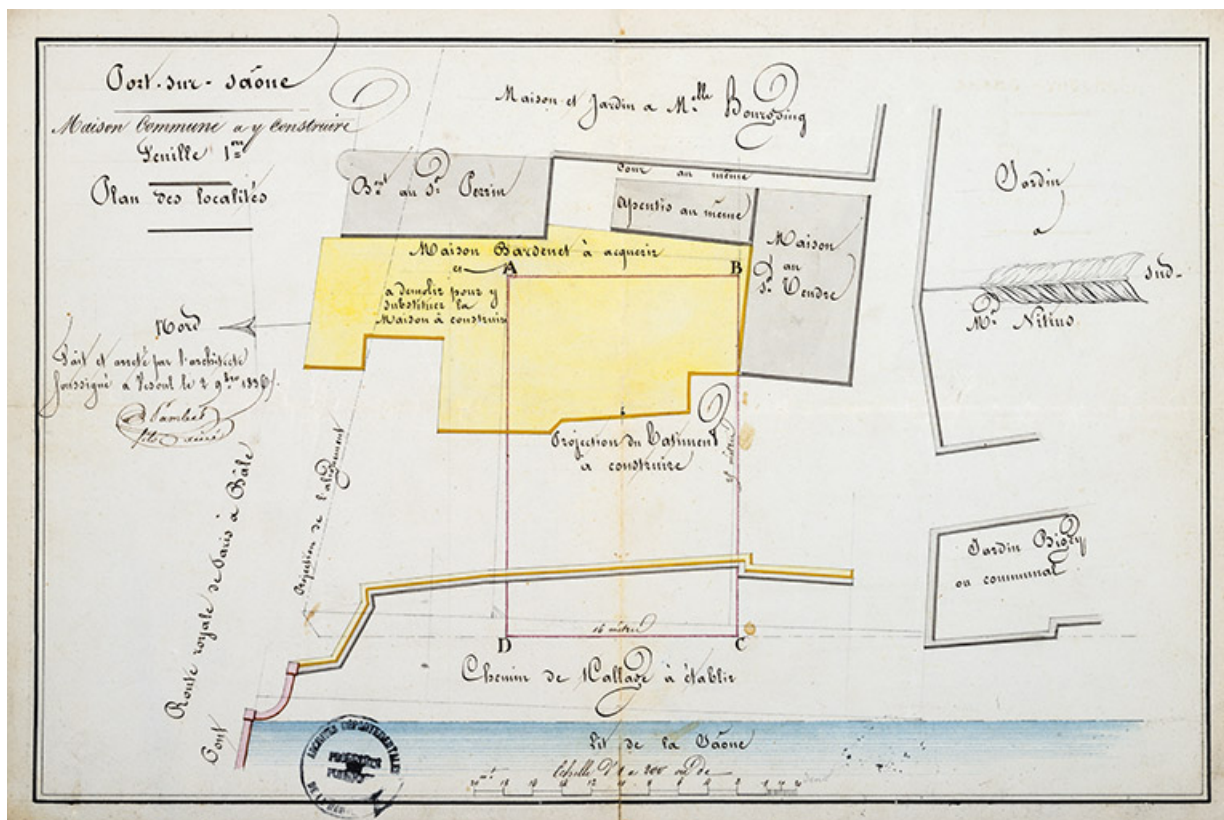 Port-sur-Saône
Maison Commune a y Construire
Feuille 1re
Plan des localités
Maison et Jardin a Melle
Bmt au Sr Perrin
Cour au même
Apentis au même
Maison
au
Sr Vendre
Jardin
a
Mr Nitius
Sud
Nord
Maison Bardenet à acquerir
et
A
B
a demolir pour y
substituer la
Maison à construire
Fait et arreté par l'architecte
soussigné a Vesoul le 2 9bre 1836
Projection du Batiment
a construire
Projection de l'alignement
Route royale de Paris à Bâle
Pont
Jardin Bigey
ou communal
16 mètres
D
C
Chemin de Hallage à établir
Lit de la Saône
Echelle d'1 a 200 ou de
ARCHIVES DÉPARTEMENTALES